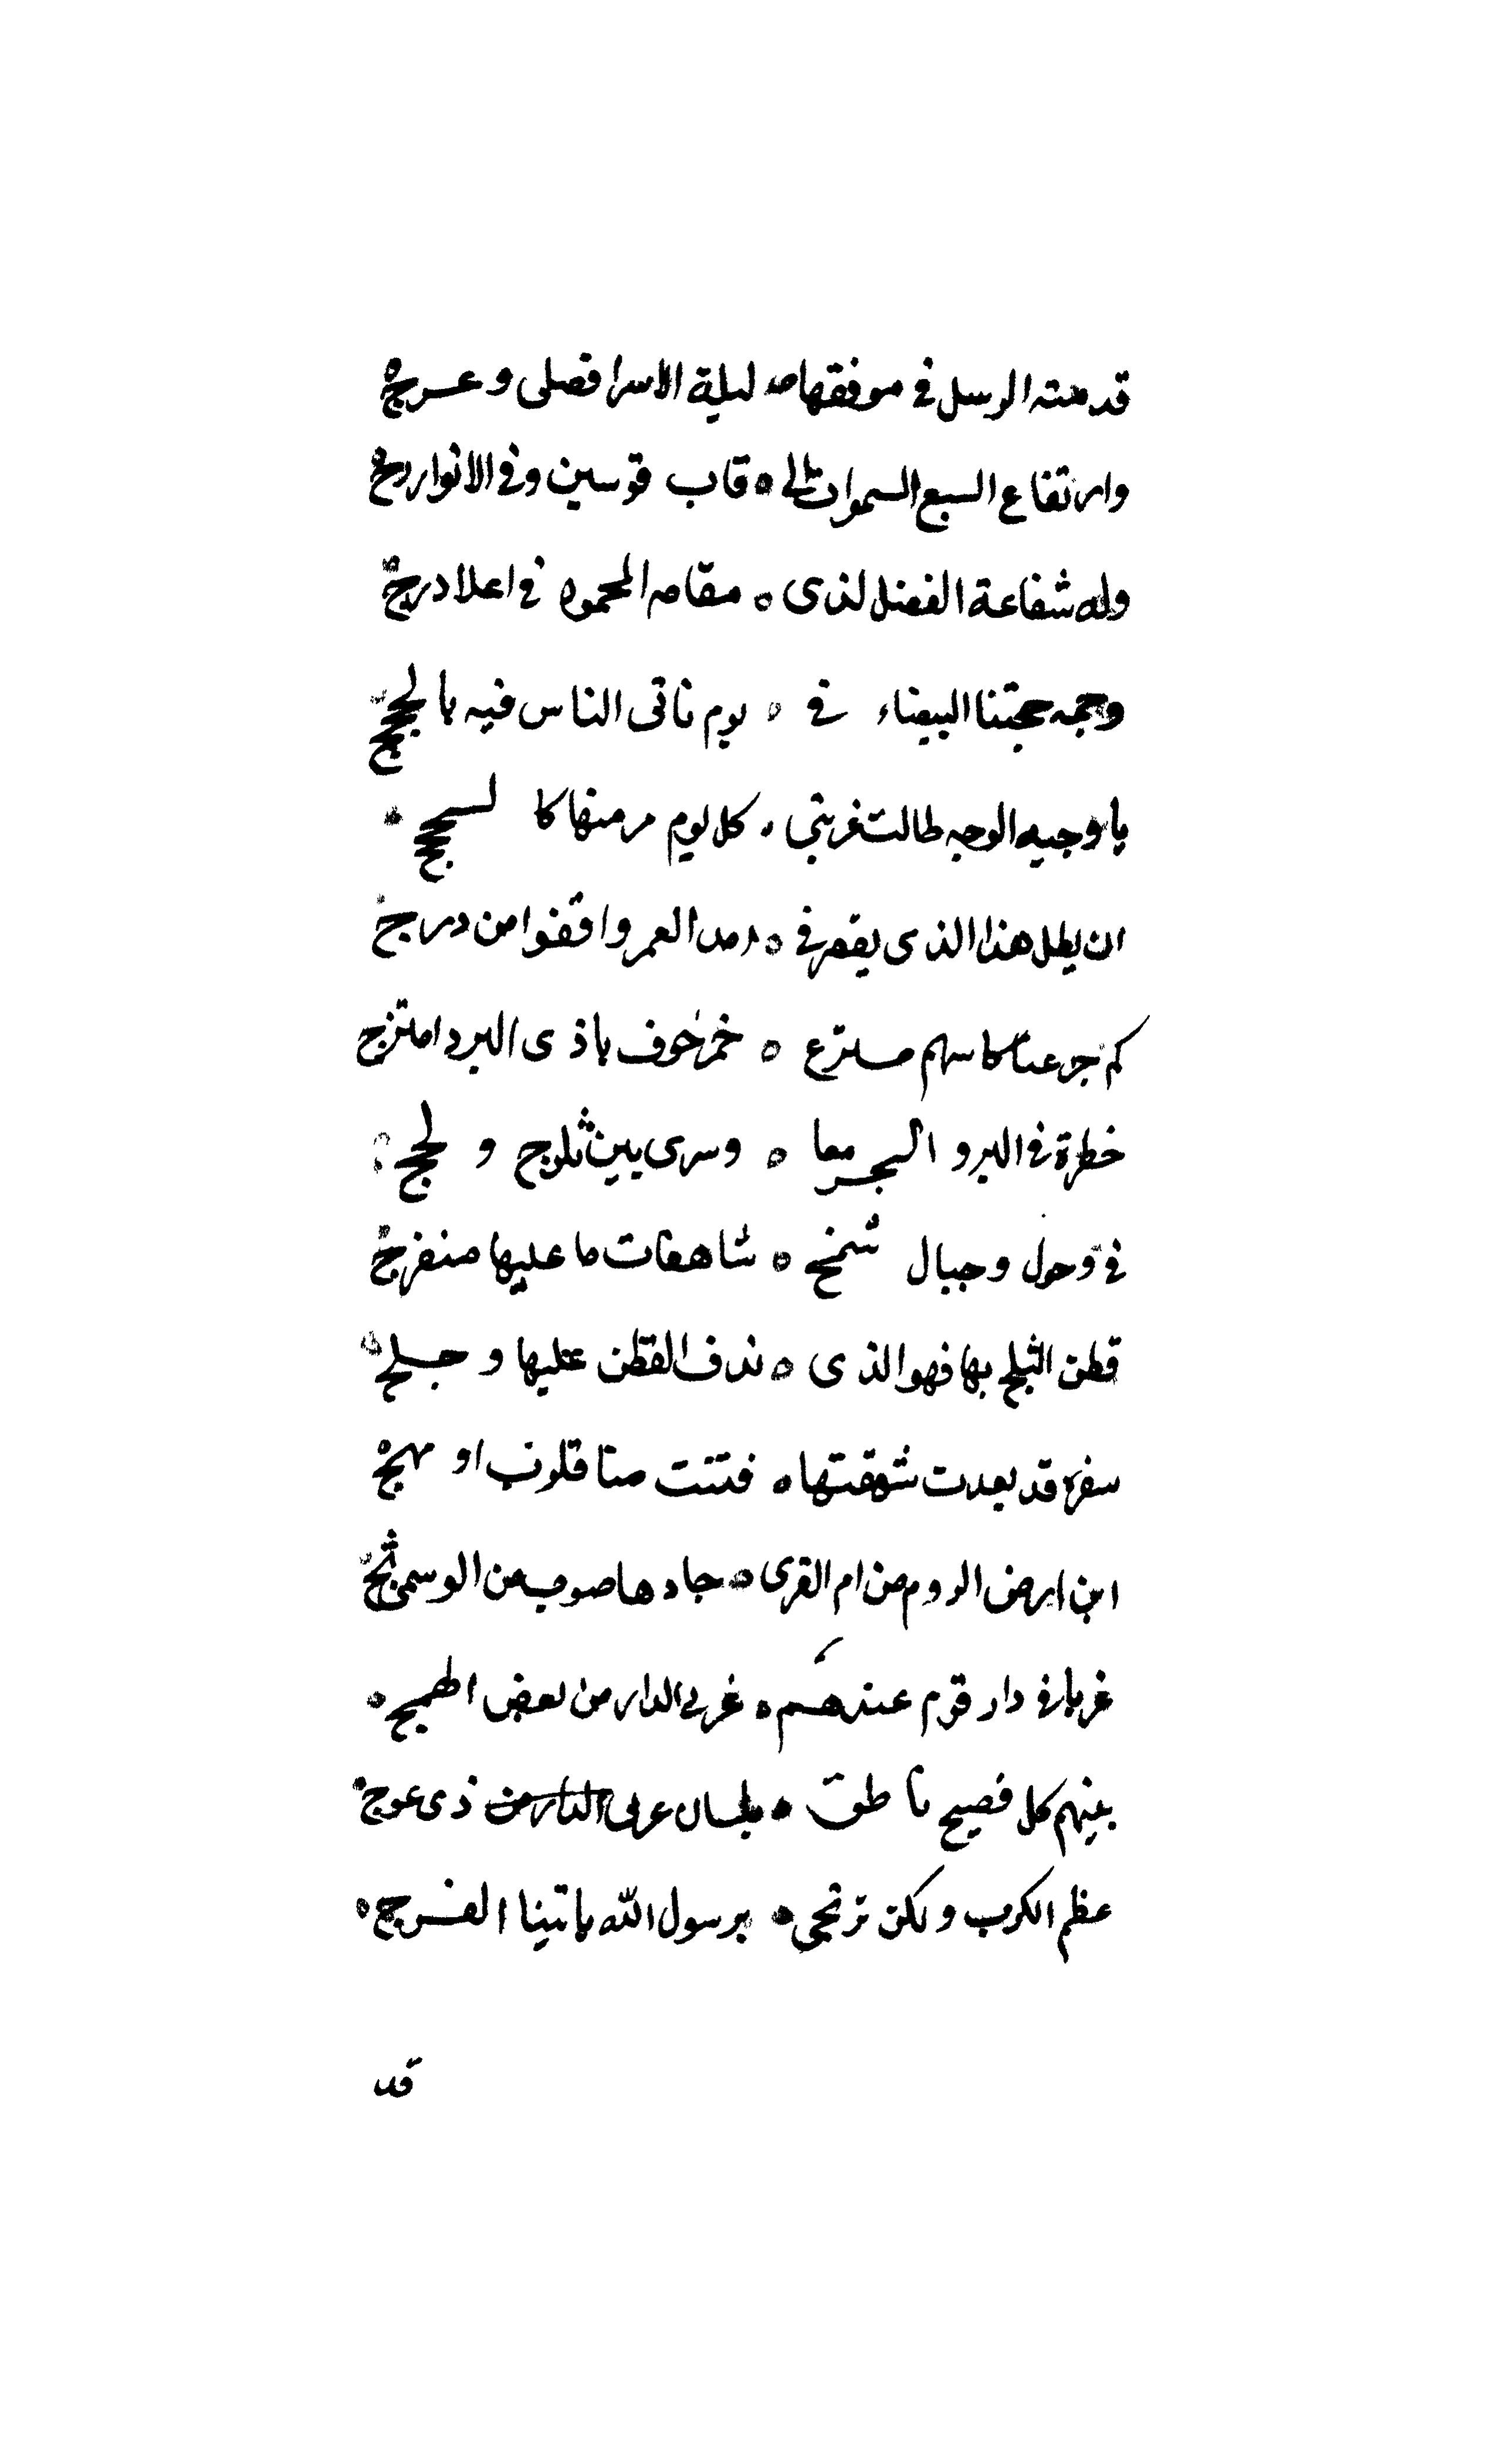 قدمته الرسل في موفقها ه ليلة الاسرا فصلى وعرج ه
وارتقاع السبع السموات الى ه قاب قوسين وفي الانوار زج
وله شفاعة الفضل لذى ه مقامه المحمود في اعلا درج
وجهه حجتنا البيضاء في ه يوم تاتى الناس فيه بالحجج
يا وجيه الوجه طالت غربتي ه كل يوم مر منها كا لحجج
ان يطل هذا الذى يقصر في ه امد العمر وافقوا من درج
كم جرعنا كاسهم مترع ه خمر خوف باذى البرد امتزج
خطرة في البر و البحر معا ه وسرى بين ثلوج و لجج
في وحول وجبال شمخ ه شاهقات ما عليها منفرج
قطن الثلج بها فهو الذى ه ندف القطن عليها و حلج
سفرة قد بعدت شقتها ه فتتت منا قلوب او مهج ه
اين ارض الروم من ام القرى ه جادها صوب من الوسمى ثج
غربا في دار قوم عندهم ه غربى الدار من بعض الهمج ه
بينهم كل فصيح ناطق ه بلسان عربى الدار من ذى عوج
عظم الكرب ولكن نرتجى ه برسول الله ياتينا الفرج ه
قد